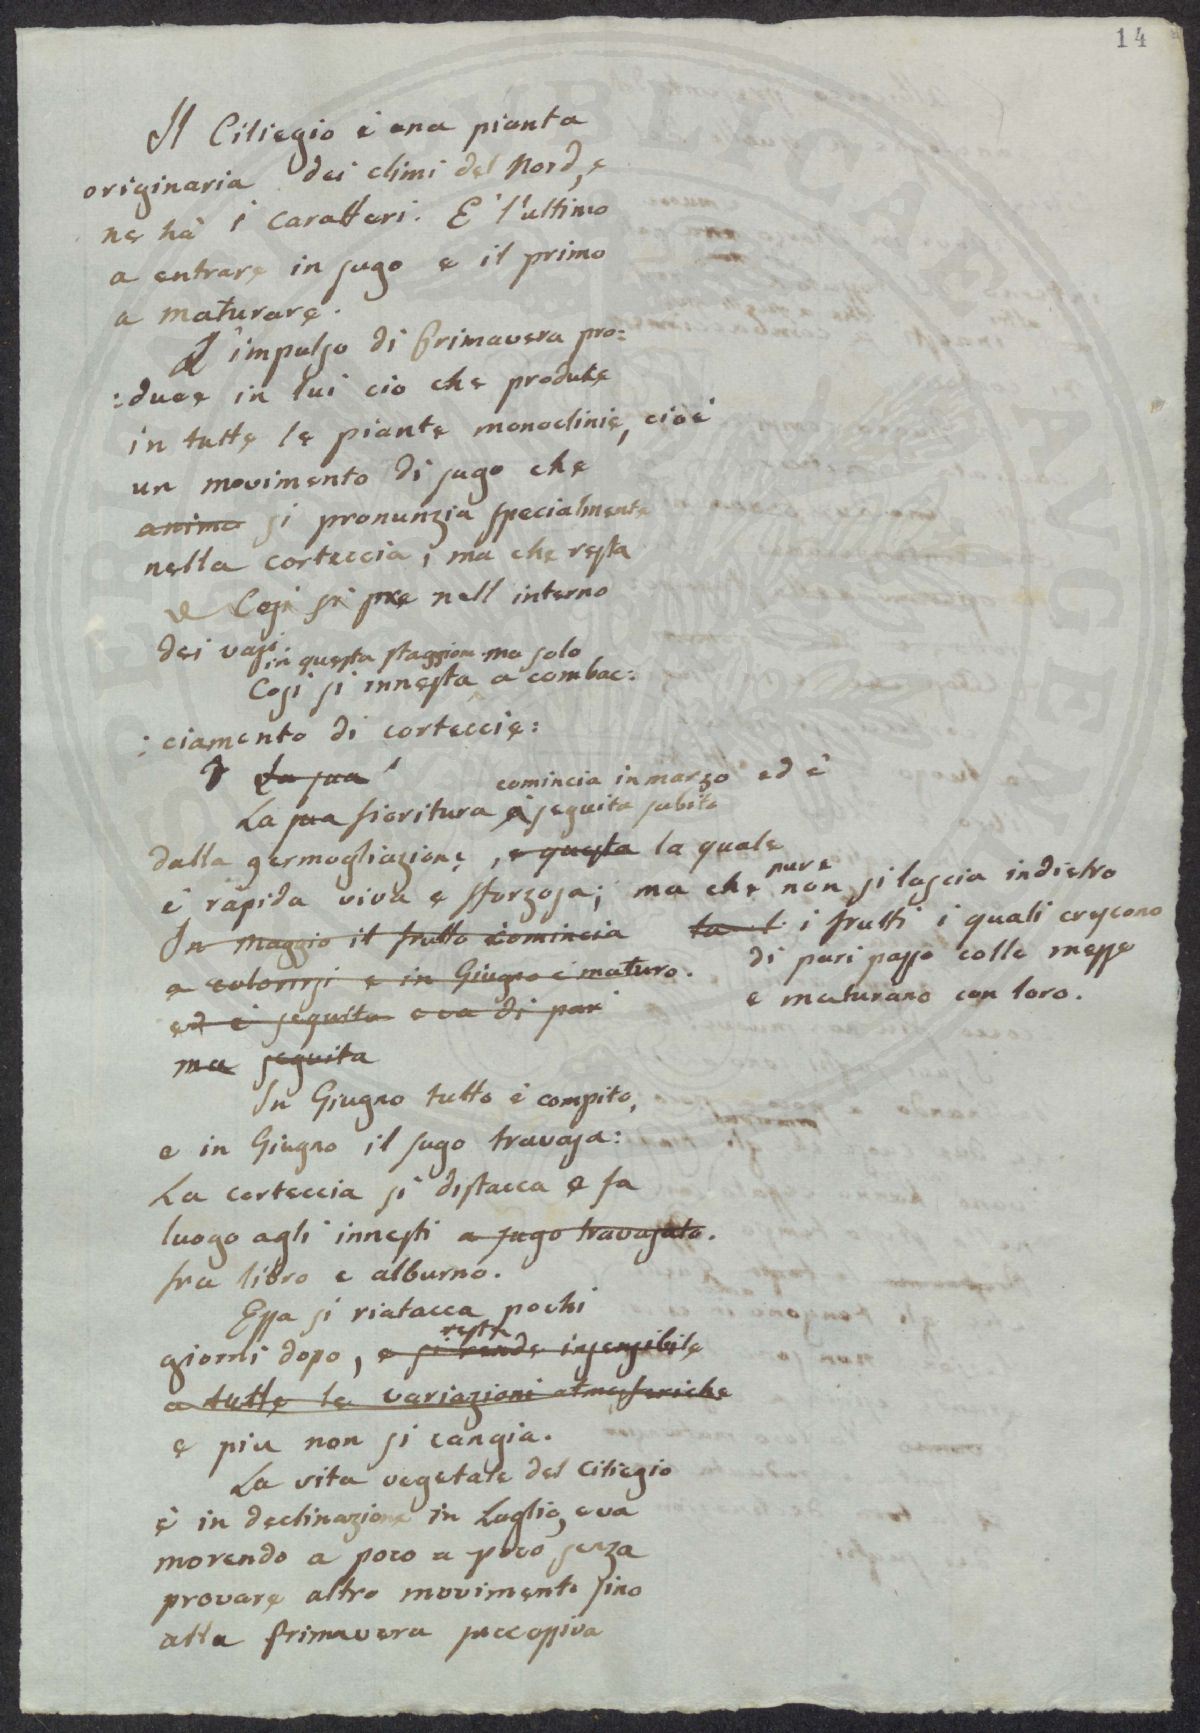 14
Il Ciliegio è una pianta
originaria dei climi del Nord, e
ne hà i caratteri. E' l'ultimo
a entrare in sugo e il primo
a maturare.
L'impulso di Primavera pro=
:duce in lui ciò che produce
in tutte le piante monoclinie, cioè
un movimento di sugo che
anima si pronunzia specialmente
nella corteccia, ma che resta
e Cosi si pre nell interno
dei vasi.
in questa staggione ma solo
Cosi si innesta a combac:
:ciamento di corteccie:
La sua
comincia in marzo ed è
La sua fioritura è seguita subito
dalla germogliazione, e questa la quale
è rapida viva e sforzosa; ma che pure non si lascia indietro
i frutti i quali crescono
di pari passo colle messe
e maturano con loro.
In Maggio il frutto comincia
a colorirsi e in Giugno è maturo.
ed è seguita e va di pari
ma seguita
In Giugno tutto è compito,
e in Giugno il sugo travasa:
La corteccia si distacca e fa
luogo agli innesti a sugo travasato.
fra libro e alburno.
Essa si riatacca pochi
resta
giorni dopo, e si rende insensibile
a tutte le variazioni atmosferiche
e piu non si cangia.
La vita vegetale del Ciliegio
è in declinazione in Luglio, e va
morendo a poco a poco senza
provare altro movimento fino
alla Primavera successiva